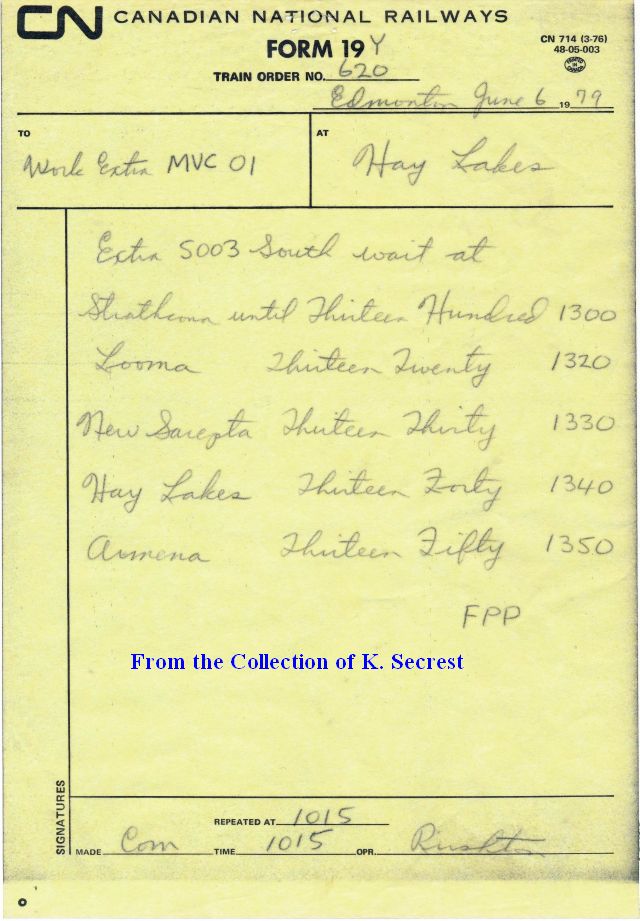 CN CANADIAN NATIONAL RAILWAYS
FORM 19 Y
CN 714 (3-76)
48-05-003
TRAIN ORDER NO. 620
Edmonton June 6 1979
TO
Work Extra MVC 01
AT
Hay Lakes
Extra 5003 South wait at
Strathcona until Thirteen Hundred 1300
Looma Thirteen Twenty 1320
New Sarepta Thirteen Thirty 1330
Hay Lakes Thirteen Forty 1340
Armena Thirteen Fifty 1350
FPP
From the Collection of K. Secrest
SIGNATURES
REPEATED AT 1015
MADE Com TIME 1015 OPR. Rushton